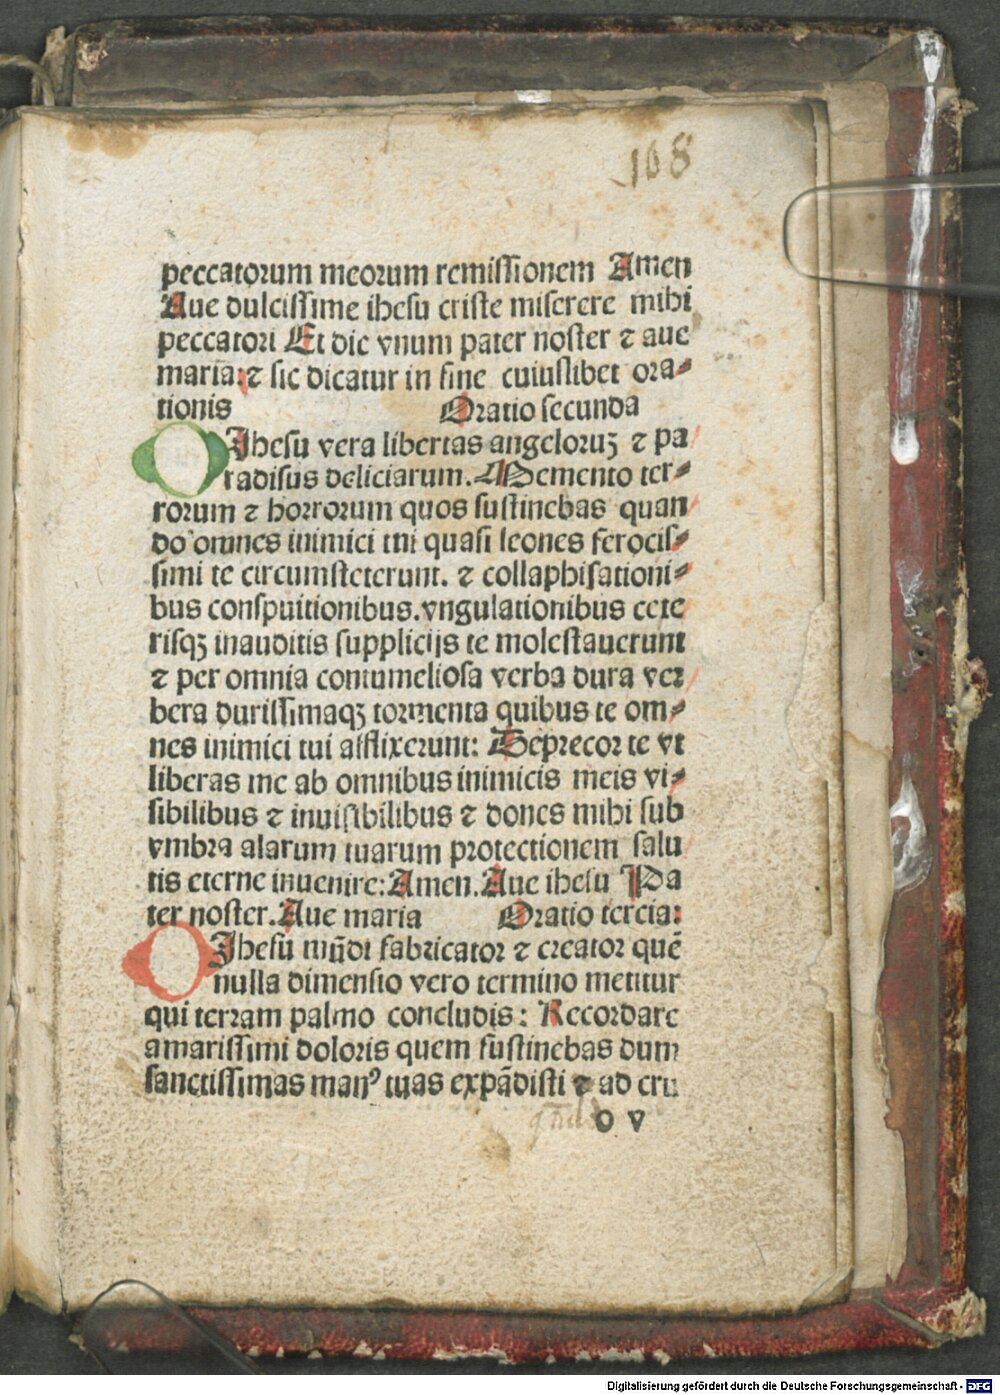 108
peccatorum meorum remissionem Amen
Aue dulcissime ihesu criste miserere mihi
peccatori Et dic vnum pater noster ⁊ aue
maria:⁊ sic dicatur in fine cuiuslibet ora⸗
tionis Oratio secunda
O Jhesu vera libertas angeloruꝫ ⁊ pa
radisus deliciarum. Memento ter⸗
rorum ⁊ horrorum quos sustinebas quan
do omnes inimici tui quasi leones ferocis⸗
simi te circumsteterunt. ⁊ collaphisationi⸗
bus conspuitionibus.vngulationibus cete
risqꝫ inauditis supplicijs te molestauerunt
⁊ per omnia contumeliosa verba dura ver
bera durissimaqꝫ tormenta quibus te om⸗
nes inimici tui afflixerunt: Deprecor te vt
liberas me ab omnibus inimicis meis vi⸗
sibilibus ⁊ inuisibilibus ⁊ dones mihi sub
vmbra alarum tuarum protectionem salu
tis eterne inuenire: Amen. Aue ihesu Pa
ter noster. Aue maria Oratio tercia:
O Jhesu mūdi fabricator ⁊ creator quē
nulla dimensio vero termino metitur
qui terram palmo concludis: Recordare
amarissimi doloris quem sustinebas dum
sanctissimas manꝰ tuas expādisti ⁊ ad cru
o v
Digitalisierung gefördert durch die Deutsche Forschungsgemeinschaft - DFG